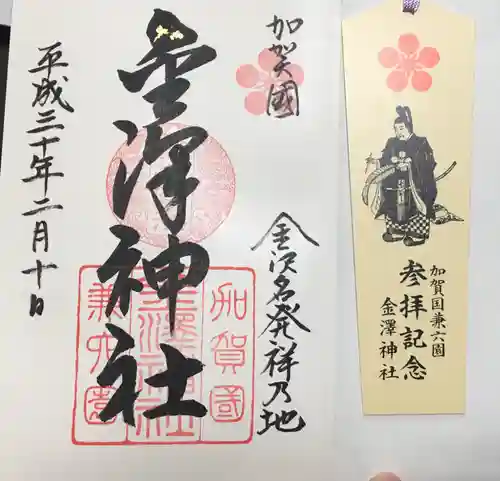 加賀國
金澤神社
金沢名発祥乃地
平成三十年二月十日
加賀國
金澤神社
兼六園
加賀国兼六園
参拝記念
金澤神社